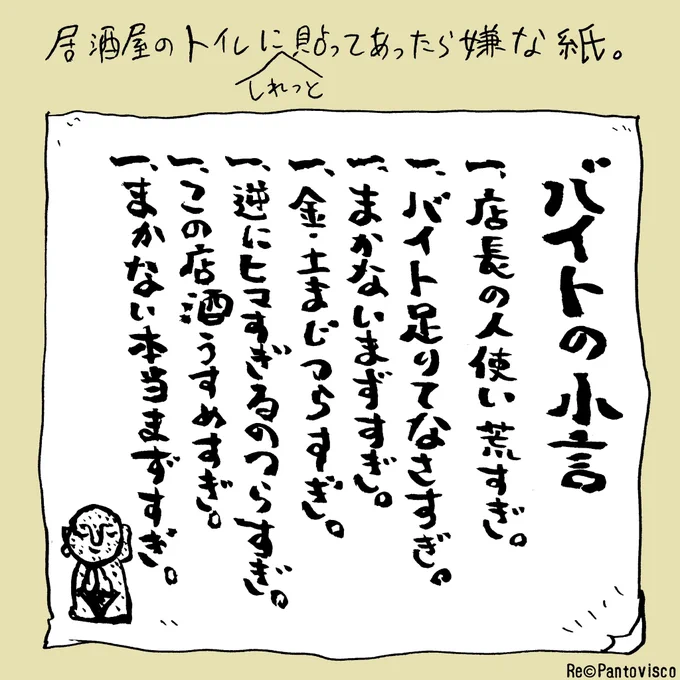 居酒屋のトイレに貼ってあったら嫌な紙。
しれっと
バイトの小言
一、店長の人使い荒すぎ。
一、バイト足りてなさすぎ。
一、まかないまずすぎ。
一、金・土まじつらすぎ。
一、逆にヒマすぎるのつらすぎ。
一、この店酒うすめすぎ。
一、まかない本当まずすぎ。
Re©Pantovisco